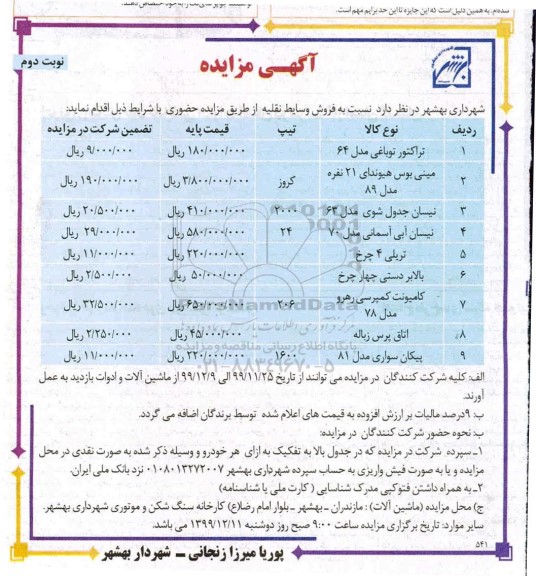 شده‌ام، به همین دلیل است که این جایزه تا این حد برایم مهم است.
نوبت دوم
آگهـی مزایده
شهرداری بهشهر در نظر دارد نسبت به فروش وسایط نقلیه از طریق مزایده حضوری با شرایط ذیل اقدام نماید:
ردیف نوع کالا تیپ قیمت پایه تضمین شرکت در مزایده
۱ تراکتور توباغی مدل ۶۴ ۱۸۰/۰۰۰/۰۰۰ ریال ۹/۰۰۰/۰۰۰ ریال
۲ مینی بوس هیوندای ۲۱ نفره مدل ۸۹ کروز ۳/۸۰۰/۰۰۰/۰۰۰ ریال ۱۹۰/۰۰۰/۰۰۰ ریال
۳ نیسان جدول شوی مدل ۶۳ ۲۰۰۰ ۴۱۰/۰۰۰/۰۰۰ ریال ۲۰/۵۰۰/۰۰۰ ریال
۴ نیسان آبی آسمانی مدل ۷۰ ۲۴ ۵۸۰/۰۰۰/۰۰۰ ریال ۲۹/۰۰۰/۰۰۰ ریال
۵ تریلی ۴ چرخ ۲۲۰/۰۰۰/۰۰۰ ریال ۱۱/۰۰۰/۰۰۰ ریال
۶ بالابر دستی چهار چرخ ۵۰/۰۰۰/۰۰۰ ریال ۲/۵۰۰/۰۰۰ ریال
۷ کامیونت کمپرسی رهرو مدل ۷۸ ۲۰۶ ۶۵۰/۰۰۰/۰۰۰ ریال ۳۲/۵۰۰/۰۰۰ ریال
۸ اتاق پرس زباله ۴۵/۰۰۰/۰۰۰ ریال ۲/۲۵۰/۰۰۰ ریال
۹ پیکان سواری مدل ۸۱ ۱۶۰۰ ۲۲۰/۰۰۰/۰۰۰ ریال ۱۱/۰۰۰/۰۰۰ ریال
ParsNamadData
پایگاه اطلاع رسانی مناقصه و مزایده
۰۲۱-۸۸۳۴۹۶۷۰-۵
الف: کلیه شرکت کنندگان در مزایده می توانند از تاریخ ۹۹/۱۱/۲۵ الی ۹۹/۱۲/۹ از ماشین آلات و ادوات بازدید به عمل
آورند.
ب: ۹درصد مالیات بر ارزش افزوده به قیمت های اعلام شده توسط برندگان اضافه می گردد.
ب: نحوه حضور شرکت کنندگان در مزایده:
۱ـ سپرده شرکت در مزایده که در جدول بالا به تفکیک به ازای هر خودرو و وسیله ذکر شده به صورت نقدی در محل
مزایده و یا به صورت فیش واریزی به حساب سپرده شهرداری بهشهر ۰۱۰۸۰۱۳۲۷۲۰۰۷ نزد بانک ملی ایران.
۲ـ به همراه داشتن فتوکپی مدرک شناسایی ( کارت ملی یا شناسنامه)
ج) محل مزایده (ماشین آلات) : مازندران ـ بهشهر ـ بلوار امام رضا(ع) کارخانه سنگ شکن و موتوری شهرداری بهشهر.
سایر موارد: تاریخ برگزاری مزایده ساعت ۹:۰۰ صبح روز دوشنبه ۱۳۹۹/۱۲/۱۱ می باشد.
۵۴۱
پوریا میرزا زنجانی ـ شهردار بهشهر